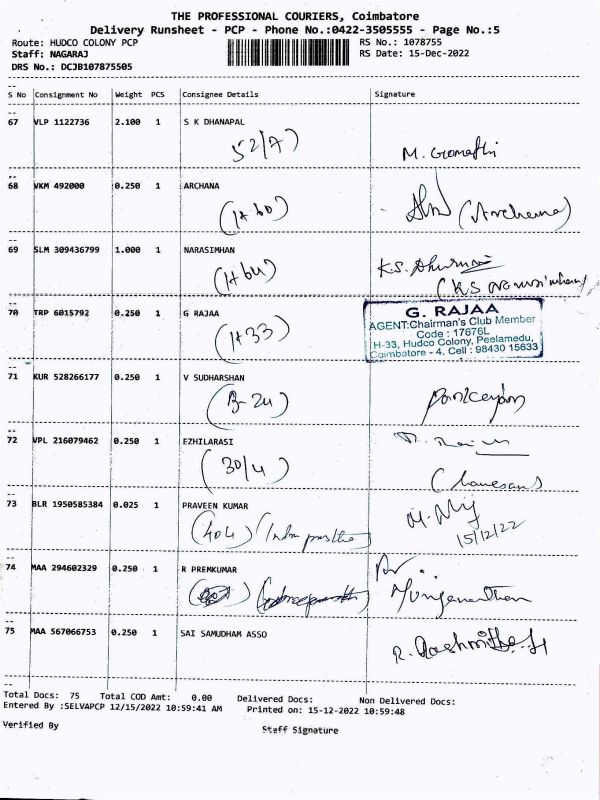 THE PROFESSIONAL COURIERS, Coimbatore
Delivery Runsheet - PCP - Phone No.:0422-3505555 - Page No.:5
Route: HUDCO COLONY PCP RS No.: 1078755
Staff: NAGARAJ RS Date: 15-Dec-2022
DRS No.: DCJB107875505
S No Consignment No Weight PCS Consignee Details Signature
67 VLP 1122736 2.100 1 S K DHANAPAL
52/7) M. Gomathi
68 VKM 492000 0.250 1 ARCHANA
(H-60) (Archana)
69 SLM 309436799 1.000 1 NARASIMHAN
(H-64) K.S.
(KS Narasimhan)
70 TRP 6015792 0.250 1 G RAJAA
(H-33)
G. RAJAA
AGENT:Chairman's Club Member
Code : 17676L
H-33, Hudco Colony, Peelamedu,
Coimbatore - 4. Cell : 98430 15633
71 KUR 528266177 0.250 1 V SUDHARSHAN
(B-24)
72 VPL 216079462 0.250 1 EZHILARASI
(30/4)
73 BLR 1950585384 0.025 1 PRAVEEN KUMAR
(404) 15/12/22
74 MAA 294602329 0.250 1 R PREMKUMAR
75 MAA 567066753 0.250 1 SAI SAMUDHAM ASSO
Total Docs: 75 Total COD Amt: 0.00 Delivered Docs: Non Delivered Docs:
Entered By :SELVAPCP 12/15/2022 10:59:41 AM Printed on: 15-12-2022 10:59:48
Verified By Staff Signature